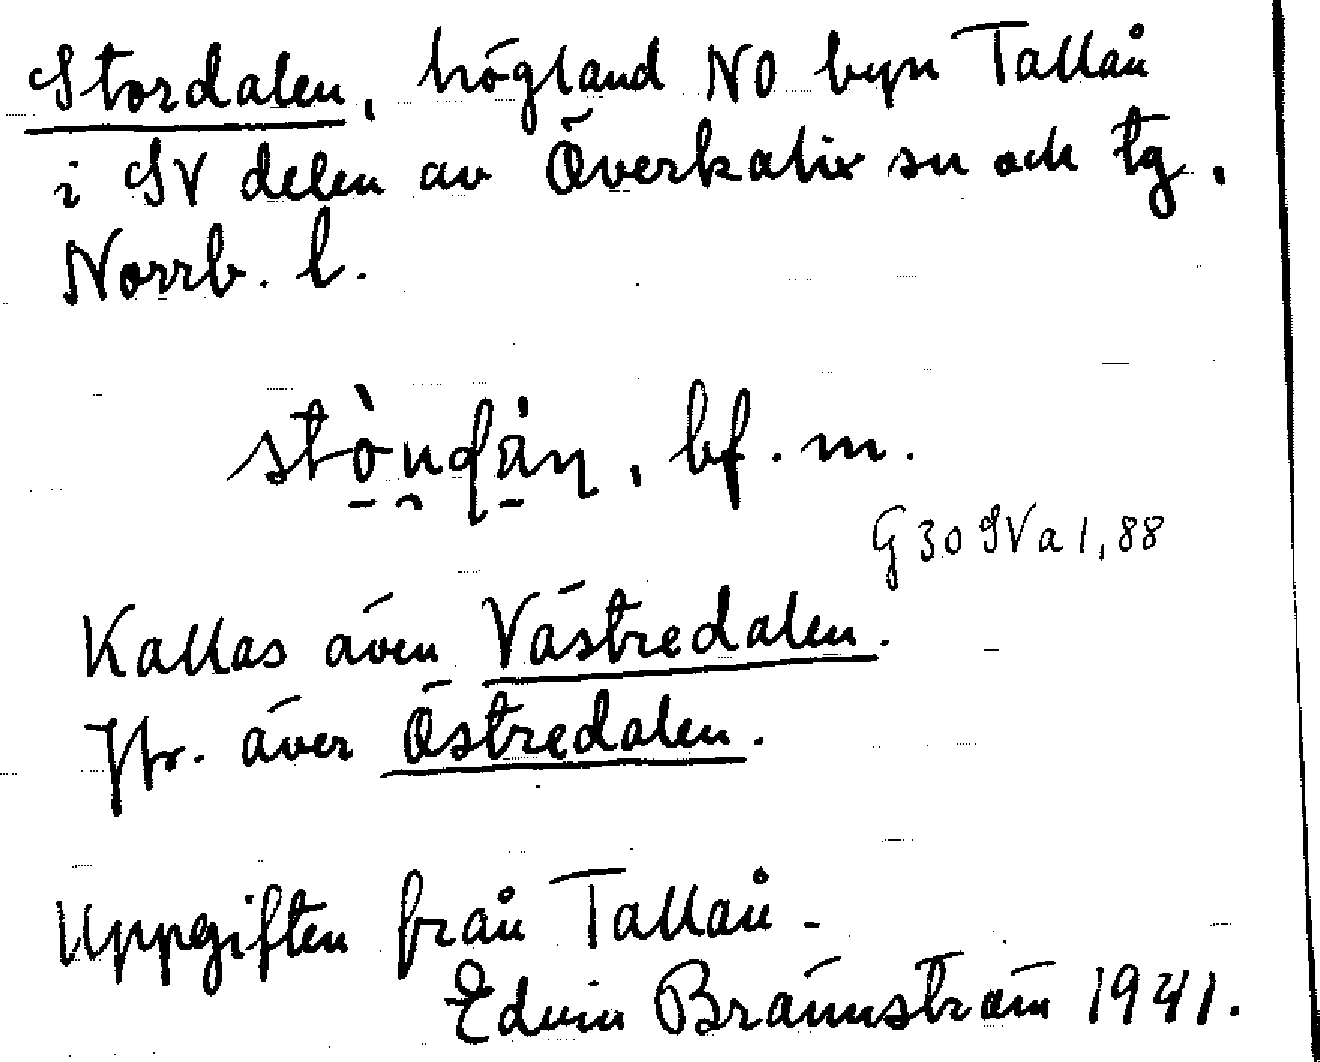 Stordalen, högland NO byn Tallån
i SV delen av Överkalix sn och tg,
Norrb. l.
bf. m.
G 30 SVa 1,88
Kallas även Västredalen.
Jfr. även Östredalen.
Uppgiften från Tallån.
Edvin Brännström 1941.